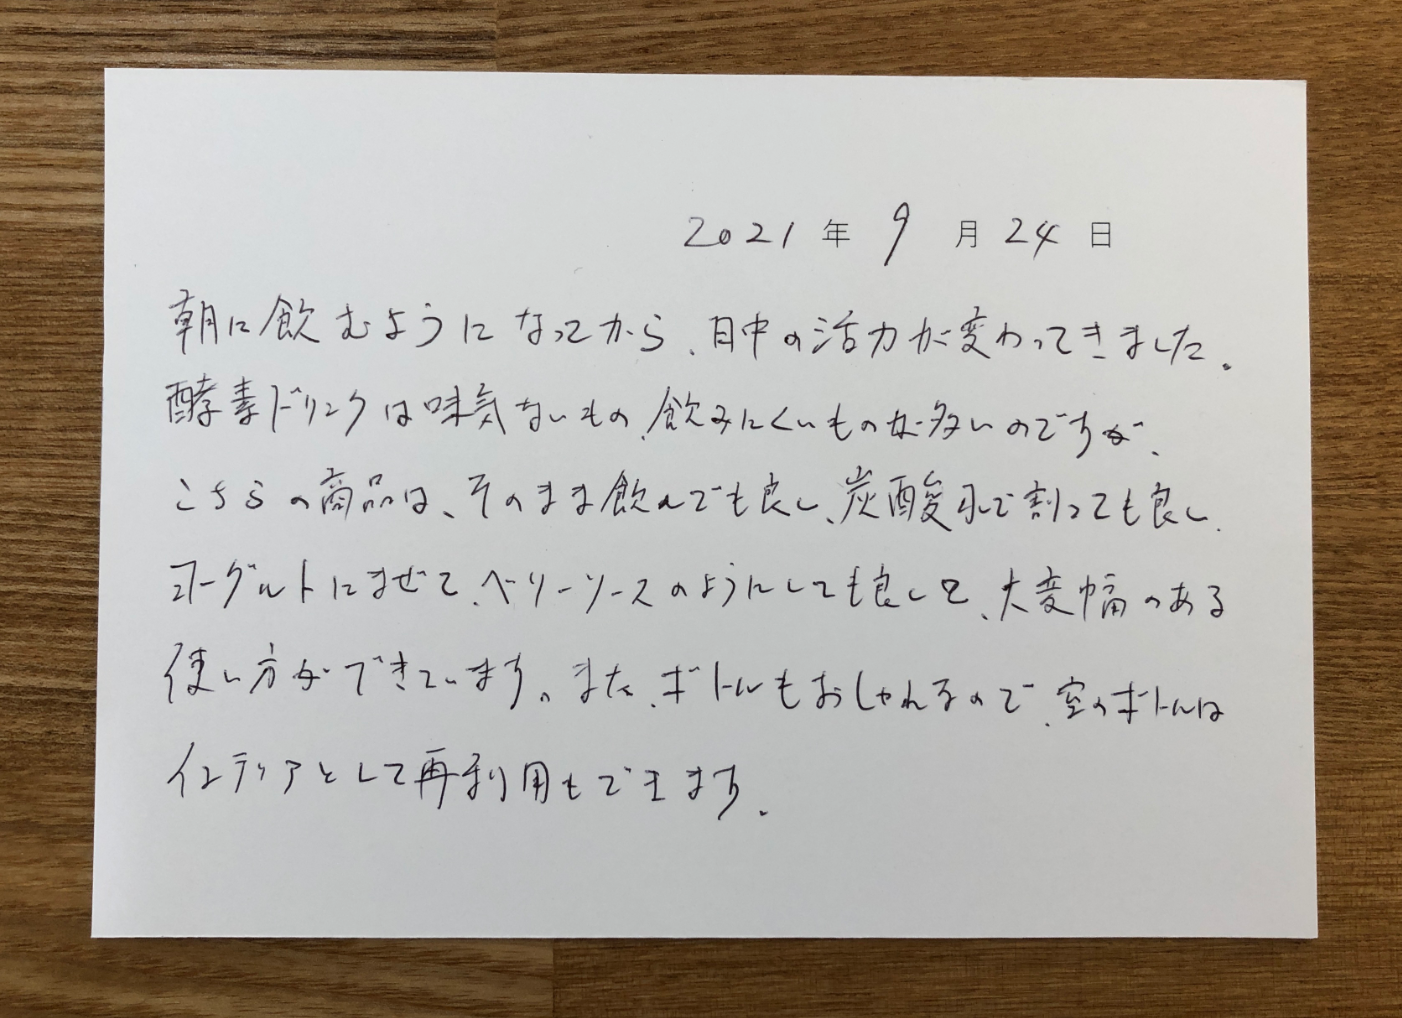 2021年 9月 24日
朝に飲むようになってから、日中の活力が変わってきました。
酵素ドリンクは味気ないもの、飲みにくいものが多いのですが、
こちらの商品は、そのまま飲んでも良し、炭酸水で割っても良し、
ヨーグルトにまぜて、ベリーソースのようにしても良しと、大変幅のある
使い方ができています。また、ボトルもおしゃれなので、空のボトルは
インテリアとして再利用もできます。